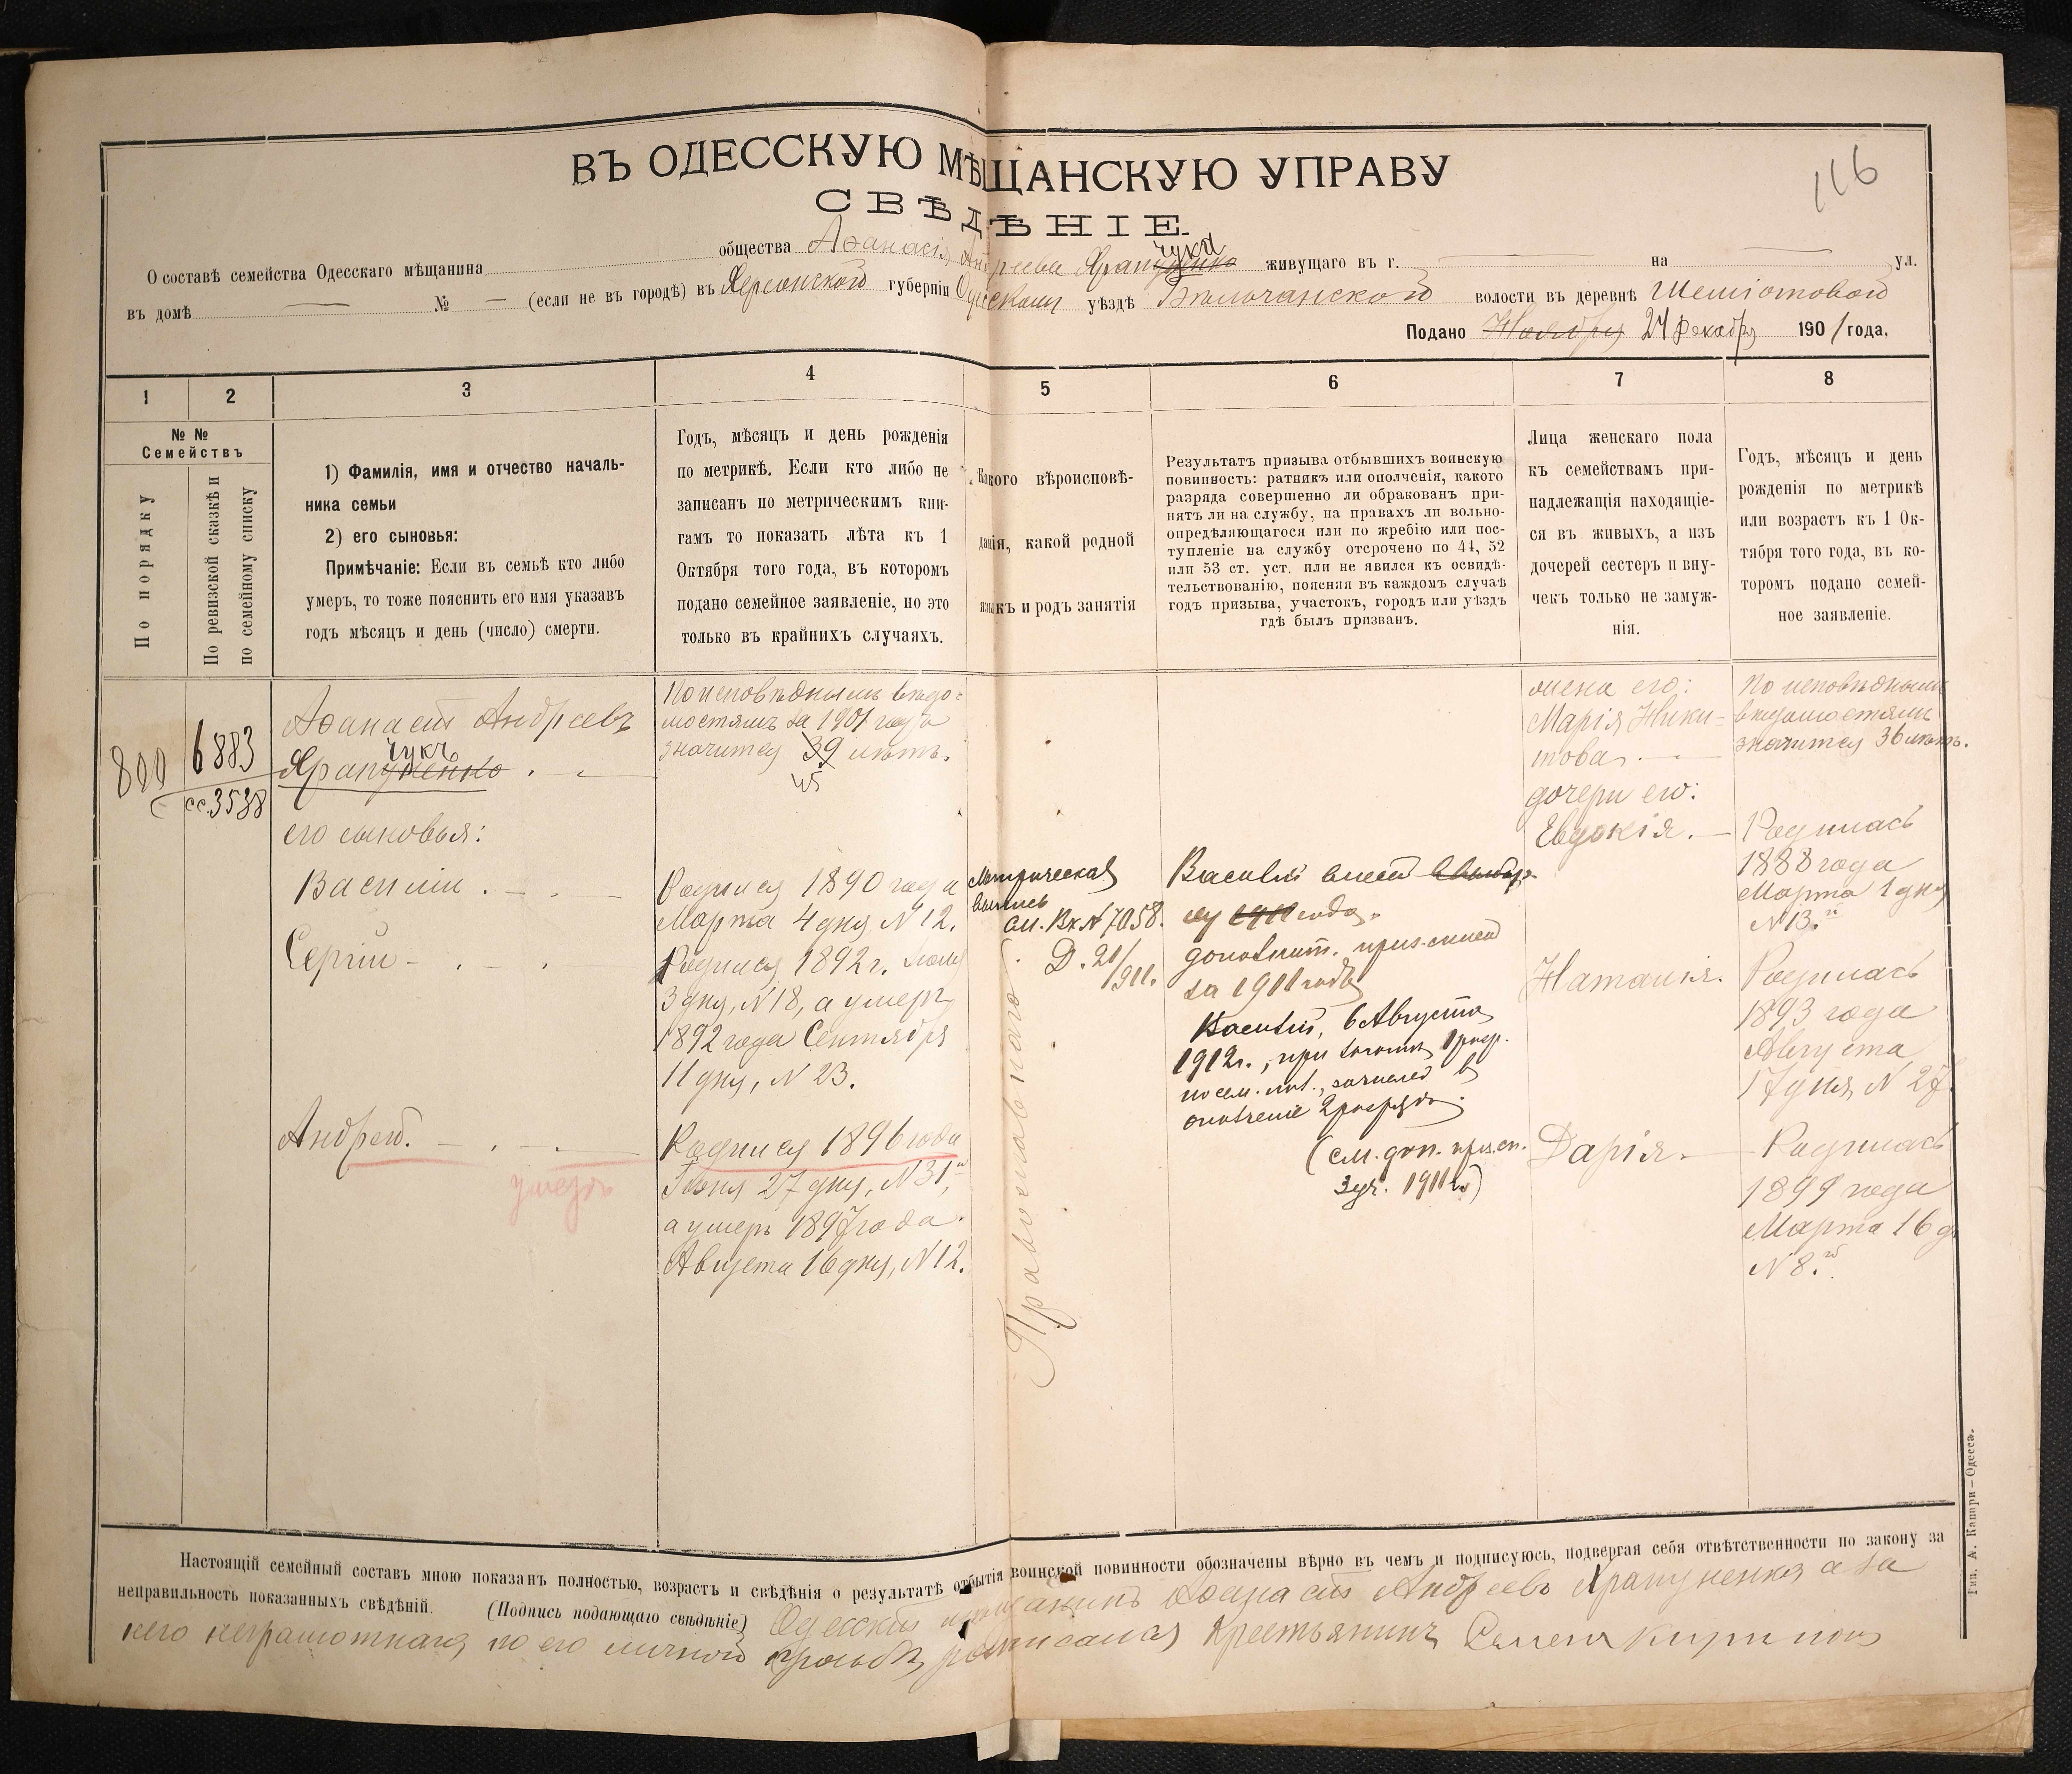 116
ВЪ ОДЕССКУЮ МѢЩАНСКУЮ УПРАВУ
СВѢДѢНІЕ.
О составѣ семейства Одесскаго мѣщанина общества Аѳанасія Андреева Храпуненко чука живущаго въ г. — на — ул.
въ домѣ — № — (если не въ городѣ) въ Херсонской губерніи Одесскомъ уѣздѣ Бѣльчанской волости въ деревнѣ Шеміотовой
Подано Ноября 24 Декабря 1901 года.
1
2
3
4
5
6
7
8
№ №
Семействъ
По порядку
По ревизской сказкѣ и
по семейному списку
1) Фамилія, имя и отчество началь-
ника семьи
2) его сыновья:
Примѣчаніе: Если въ семьѣ кто либо
умеръ, то тоже пояснить его имя указавъ
годъ мѣсяцъ и день (число) смерти.
Годъ, мѣсяцъ и день рожденія
по метрикѣ. Если кто либо не
записанъ по метрическимъ кни-
гамъ то показать лѣта къ 1
Октября того года, въ которомъ
подано семейное заявленіе, но это
только въ крайнихъ случаяхъ.
Какого вѣроисповѣ-
данія, какой родной
языкъ и родъ занятія
Результатъ призыва отбывшихъ воинскую
повинность: ратникъ или ополченія, какого
разряда совершенно ли обракованъ при-
нятъ ли на службу, на правахъ ли вольно-
опредѣляющагося или по жребію или пос-
тупленіе на службу отсрочено по 44, 52
или 53 ст. уст. или не явился къ освидѣ-
тельствованію, поясняя въ каждомъ случаѣ
годъ призыва, участокъ, городъ или уѣздъ
гдѣ былъ призванъ.
Лица женскаго пола
къ семействамъ при-
надлежащія находящіе-
ся въ живыхъ, а изъ
дочерей сестеръ и вну-
чекъ только не замуж-
нія.
Годъ, мѣсяцъ и день
рожденія по метрикѣ
или возрастъ къ 1 Ок-
тября того года, въ ко-
торомъ подано семей-
ное заявленіе.
800
6883
сс. 3538
Аѳанасій Андреевъ
Храпуненко чукъ
его сыновья:
Василій . —
Сергій —
Андрей. —
умеръ
По исповѣднымъ вѣдо-
мостямъ за 1901 годъ
значится 39 лѣтъ.
45
Родился 1890 года
Марта 4 дня, N 12.
Родился 1892 г. Іюля
3 дня, N 18, а умеръ
1892 года Сентября
11 дня, N 23.
Родился 1896 года
Іюня 27 дня, N 31й,
а умеръ 1897 года
Августа 16 дня, N 12.
Метрическая
выпись
см. Вх N 7058.
Д. 21/911.
Православнаго
Василій внесен
1911 года.
дополнит. приз. список
за 1911 годъ
Василій, 6 Августа
1912 г., при 1 разр.
по сем. пол., зачислед в
ополченіе 2 разряда.
(см. доп. приз. сп.
3 уч. 1911 г.)
жена его:
Марія Ники-
това. —
дочери его:
Евдокія. —
Наталія.
Дарія. —
По исповѣднымъ
вѣдомостямъ
значится 36 лѣтъ.
Родилась
1888 года
Марта 1 дня
N 13.й
Родилась
1893 года
Августа
17 дня N 27.
Родилась
1899 года
Марта 16 д.
N 8.й
Настоящій семейный составъ мною показанъ полностью, возрастъ и свѣдѣнія о результатѣ отбытія воинской повинности обозначены вѣрно въ чемъ и подписуюсь, подвергая себя отвѣтственности по закону за
неправильность показанныхъ свѣдѣній. (Подпись подающаго свѣдѣніе) Одесскій мѣщанинъ Аѳанасій Андреевъ Храпуненко а за
него неграмотнаго, по его личной просьбѣ, росписался крестьянинъ Семенъ Кириловъ
Тип. А. Каппри—Одесса.